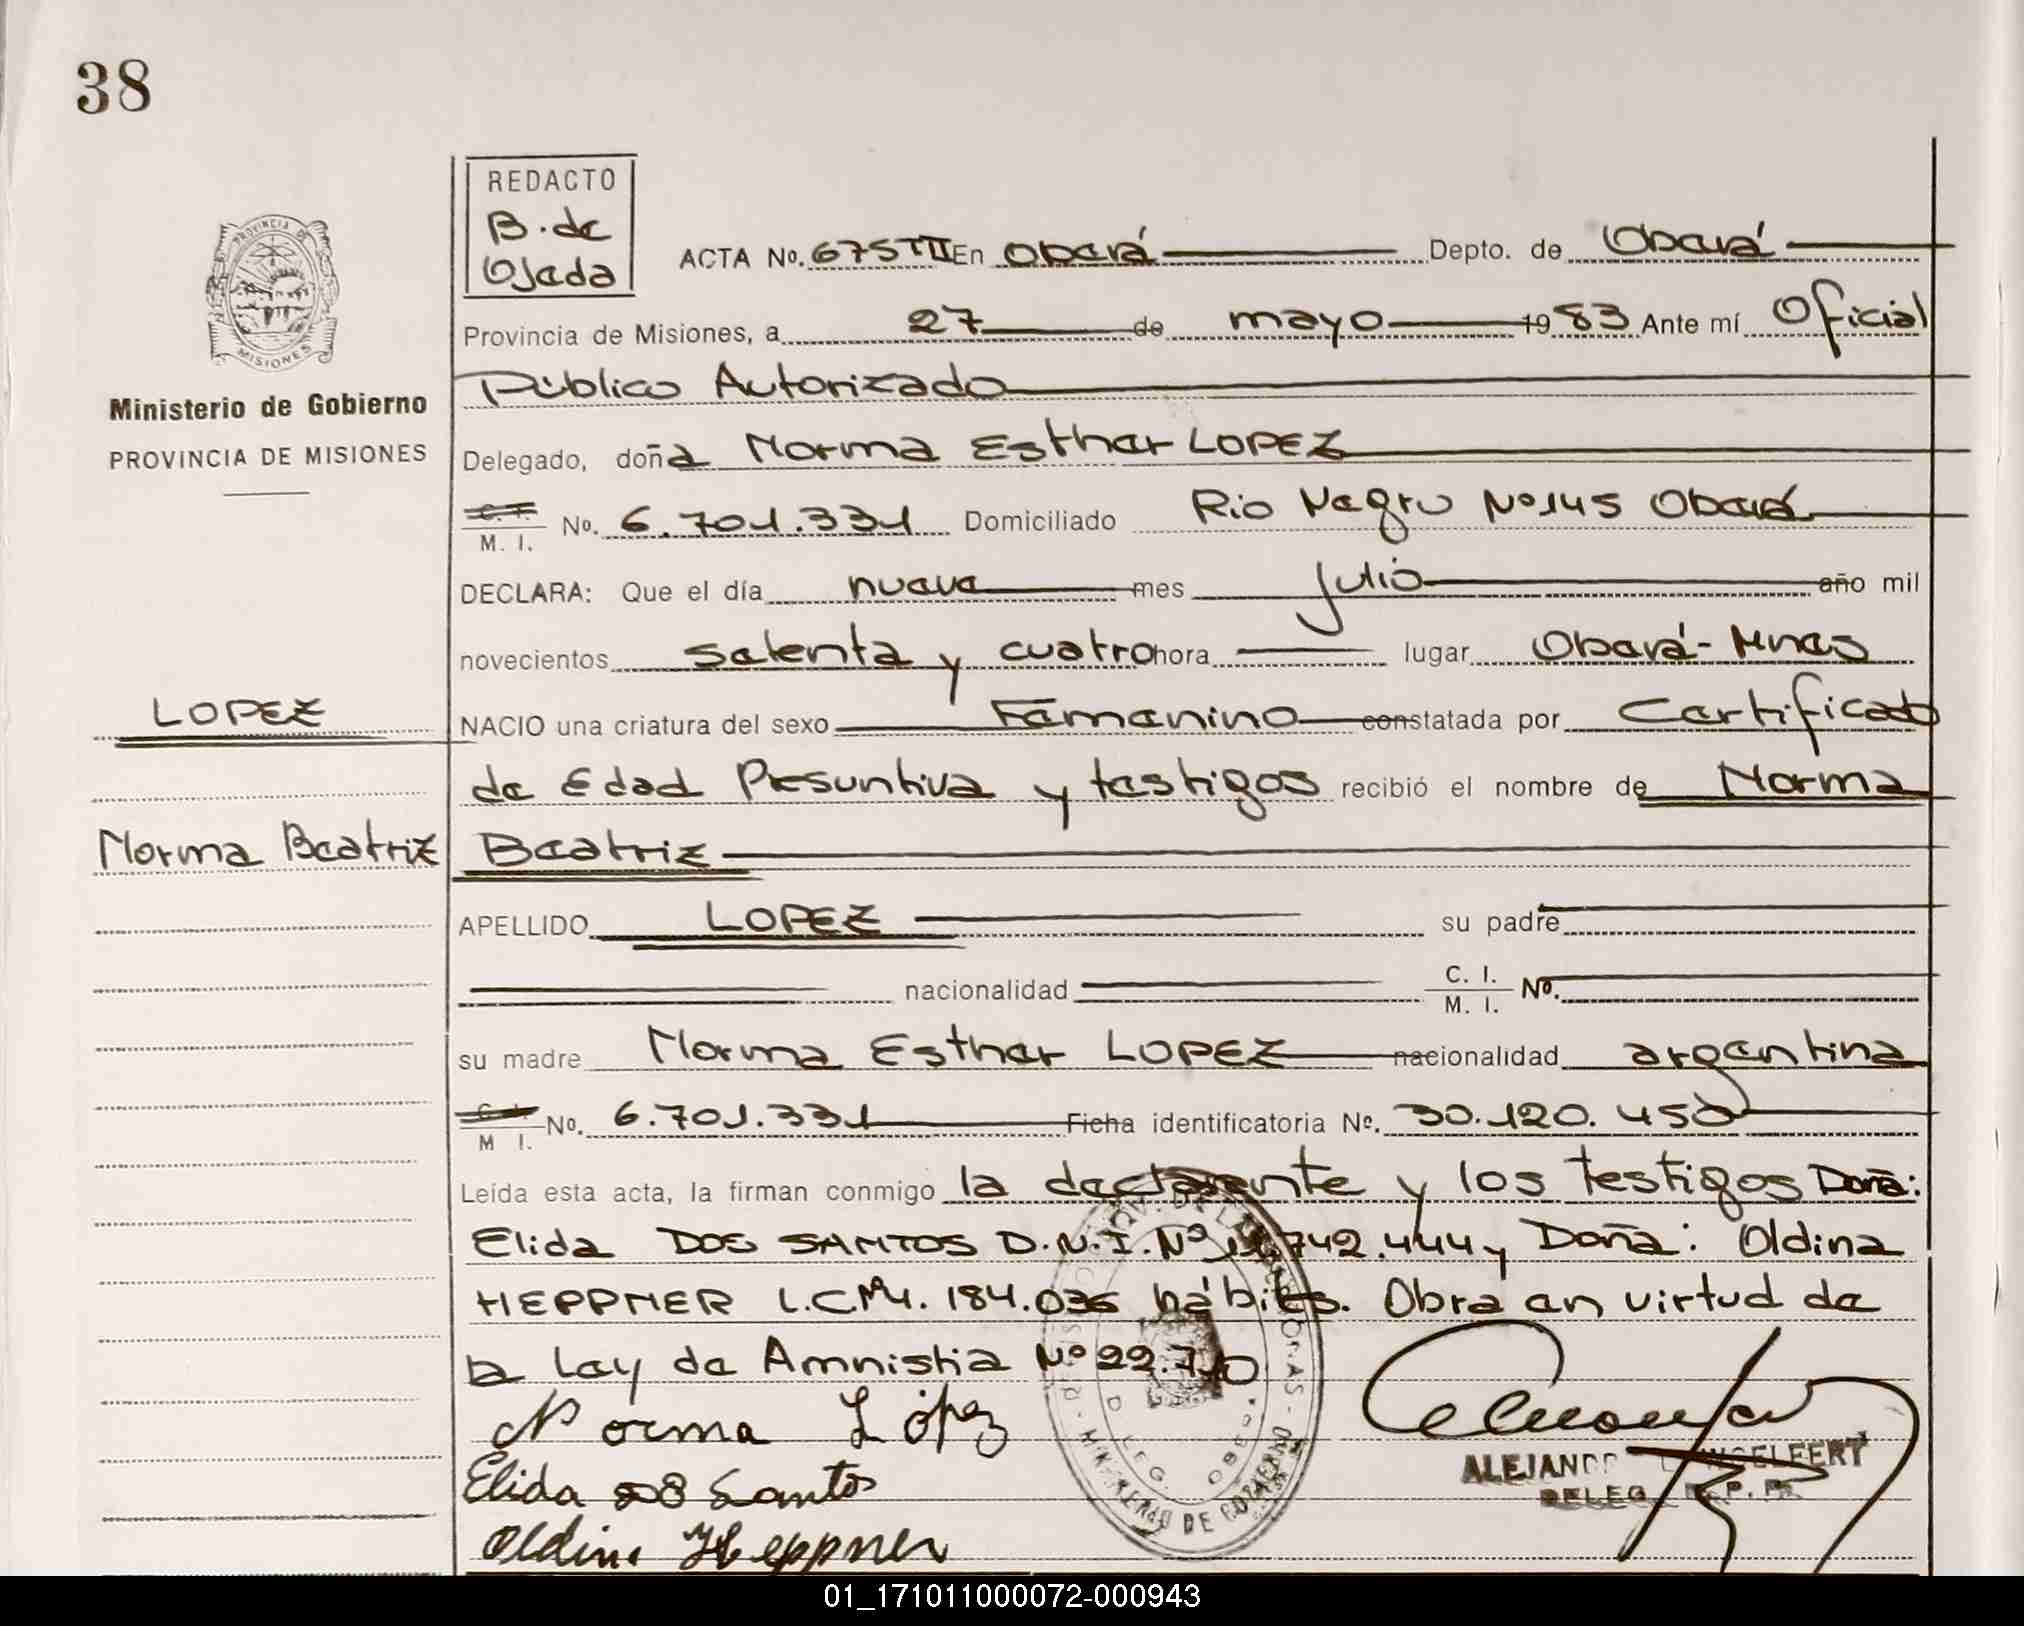 38
REDACTO
B. de
Ojeda
ACTA No. 675 TII En Oberá Depto. de Oberá
Provincia de Misiones, a 27 de mayo 1983 Ante mí Oficial
Público Autorizado
PROVINCIA DE
MISIONES
Ministerio de Gobierno
PROVINCIA DE MISIONES
Delegado, doña Norma Esther LOPEZ
C. I.
M. I. No. 6.701.331 Domiciliado Rio Negro Nº 145 Oberá
DECLARA: Que el día nueve mes julio año mil
novecientos setenta y cuatro hora lugar Oberá-Mnes
LOPEZ
NACIO una criatura del sexo Femenino constatada por Certificado
de Edad Presuntiva y testigos recibió el nombre de Norma
Norma Beatriz
Beatriz
APELLIDO LOPEZ su padre
nacionalidad C. I. M. I. Nº.
su madre Norma Esther LOPEZ nacionalidad argentina
M I. No. 6.701.331 Ficha identificatoria Nº. 30.120.450
Leída esta acta, la firman conmigo la declarante y los testigos Doña:
Elida DOS SANTOS D.N.I. Nº 742.444 y Doña: Oldina
HEPPNER L.C. Nº 4.184.036 hábiles. Obra en virtud de
la Ley de Amnistia Nº 22.
Norma López
Elida dos Santos
Oldina Heppner
ALEJAND
DELEG
MINISTERIO DE GOBIERNO
01_171011000072-000943